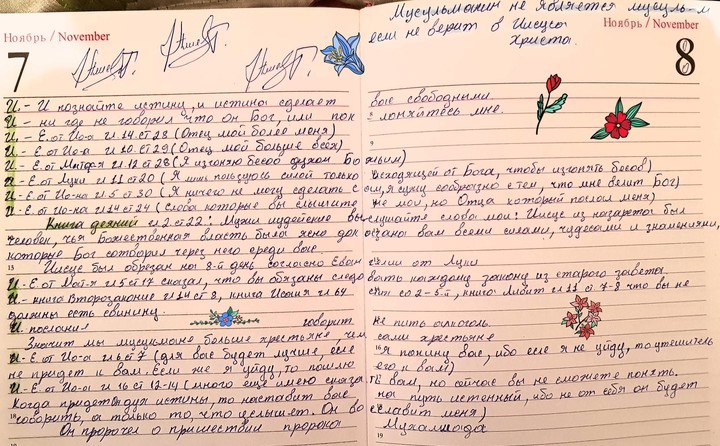 Мусульманин не является мусуль-м
если не верит в Иисуса
Христа.
Ноябрь / November
7
Ноябрь / November
8
И. - И познайте истину, и истина сделает вас свободными
И. - ни где не говорил что он Бог, или поклоняйтесь мне.
И. - Е. от Ио-а гл 14 ст 28 (Отец мой более меня)
И. - Е. от Ио-а гл 10 ст 29 (Отец мой больше всех)
И. - Е. от Матфея гл 12 ст 28 (Я изгоняю бесов духом Божьим)
И. - Е. от Луки гл 11 ст 20 (Я лишь пользуюсь силой только исходящей от Бога, чтобы изгонять бесов)
И. - Е. от Ио-на гл 5 ст 30 (Я ничего не могу сделать сам, я сужу сообразно с тем, что мне велит Бог)
И. - Е. от Ио-на гл 14 ст 24 (Слова которые вы слышите не мои, но Отца который послал меня)
Книга деяний гл 2 ст 22: Мужи иудейские выслушайте слова мои: Иисус из назарета был
человек, чья Божественная власть была ясно доказана вам всеми силами, чудесами и знамениями,
которые Бог сотворил через него среди вас
13 Иисус был обрезан на 8-й день согласно Евангелии от Луки
И - Е от Мат-я гл 5 ст 17 сказал, что вы обязаны следовать каждому закону из старого завета
И. - книга Второзаконие гл 14 ст 8, книга Исаия гл 64 ст со 2-5-й, книга Левит гл 11 ст 7-8 что вы не
должны есть свинину.
И. послания говорит не пить алкоголь
Значит мы мусульмане больше христьяне, чем сами христьяне
И - Е. от Ио-а гл 16 ст 7 (для вас будет лучше если Я покину вас, ибо если я не уйду, то утешитель
не придет к вам. Если же я уйду, то пошлю его к вам)
И - Е. от Ио-а гл 16 ст 12-14 (много ещё имею сказать вам, но сейчас вы не сможете понять.
Когда придет дух истины, то наставит вас на путь истенный, ибо не от себя он будет
18 говорить, а только то, что услышет. Он восславит меня)
Он пророчел о пришествии пророка Мухаммада
19